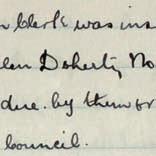 Clerk was ins
len Doherty No
due. by them fr
Council.